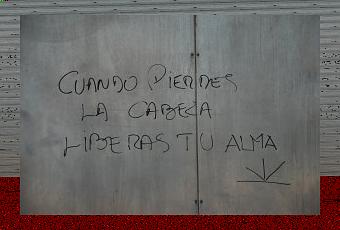 CUANDO PIERDES
LA CABEZA
LIBERAS TU ALMA